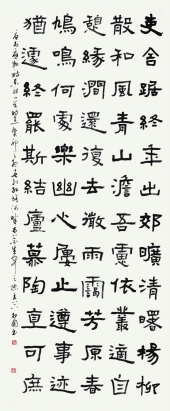 吏舍跼終年出郊曠清曙楊柳
散和風青山澹吾慮依叢適自
憩緣澗還復去微雨靄芳原春
鳩鳴何處樂幽心屢止遵事迹
猶遽終罷斯結廬慕陶直可庶